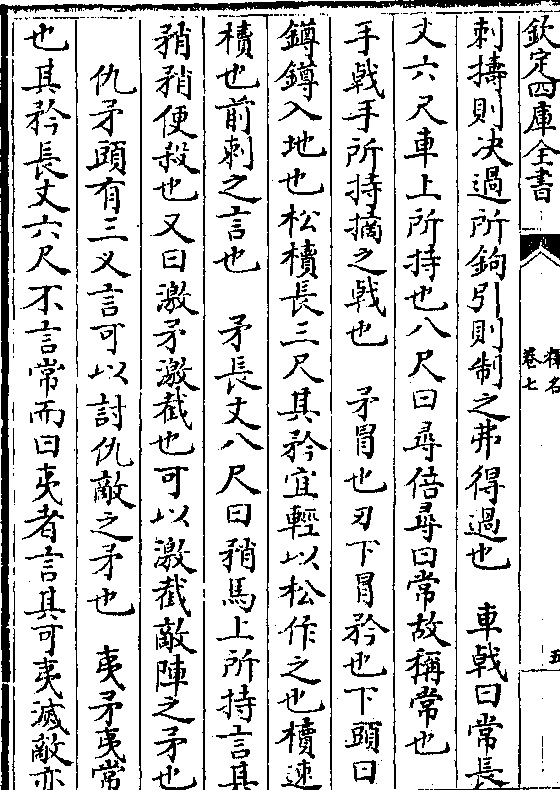 欽定四庫全書
釋名
卷七
五
刺擣則决過所鉤引則制之弗得過也　車戟曰常長
丈六尺車上所持也八尺曰尋倍尋曰常故稱常也
手戟手所持擿之戟也　矛冒也刃下冒矜也下頭曰
鐏鐏入地也松櫝長三尺其矜宜輕以松作之也櫝速
櫝也前刺之言也　矛長丈八尺曰矟馬上所持言其
矟矟便殺也又曰激矛激截也可以激截敵陣之矛也
仇矛頭有三义言可以討仇敵之矛也　夷矛夷常
也其矜長丈六尺不言常而曰夷者言其可夷滅敵亦